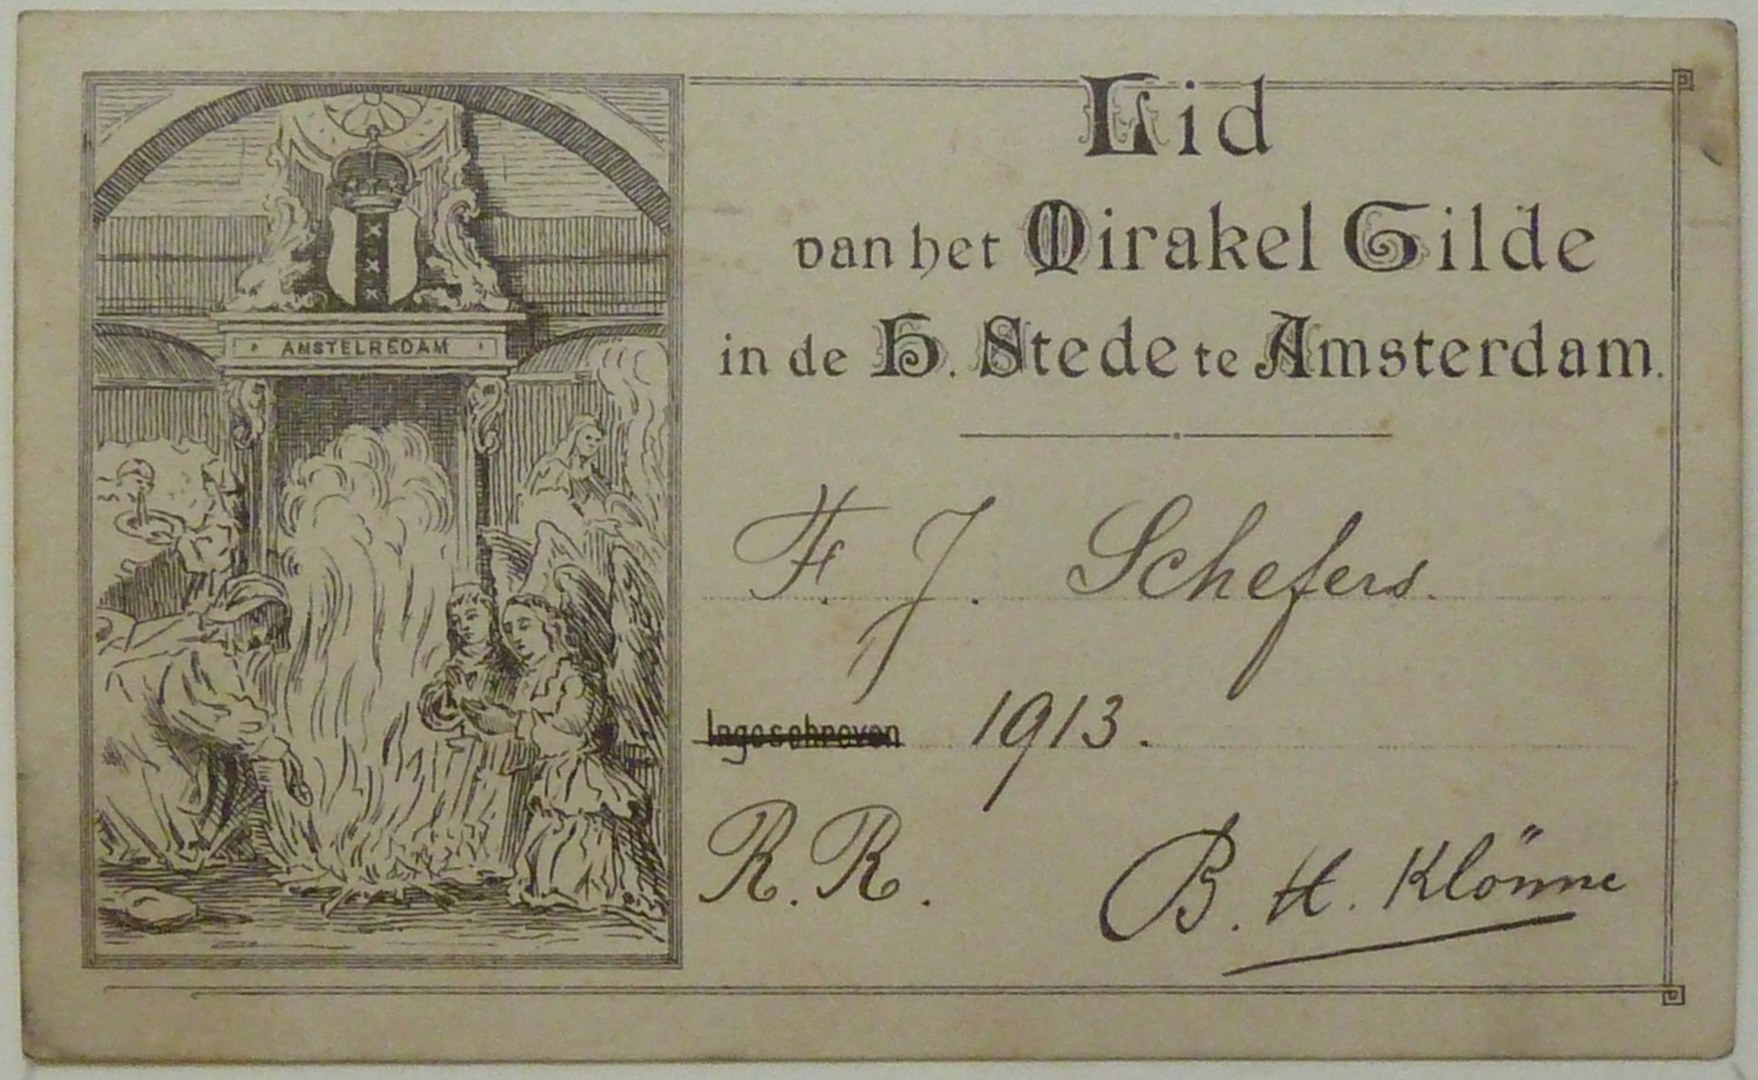 AMSTELREDAM
Lid
van het Mirakel Gilde
in de H. Stede te Amsterdam.
F. J. Schefers.
Ingeschreven 1913.
R. R. B. H. Klönne